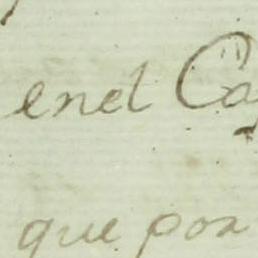 enel Ca
que por